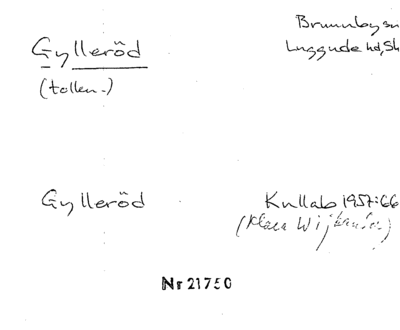 Gylleröd
(tollen.)
Brunnby sn
Luggude hd, Sk
Gylleröd
Kullab 1957:66
(Klara Wijkander)
Nr 21750